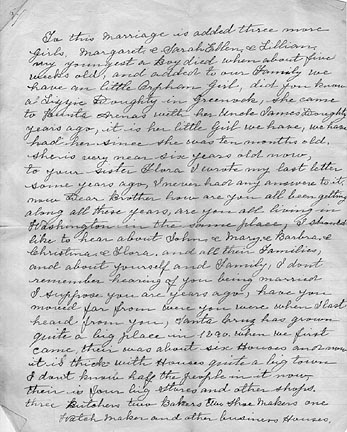 To this marriage is added three more
Girls, Margaret, & Sarah Ellen, & Lillian,
my youngest a Boy died when about five
weeks old, and added to our Family we
have an little Orphan Girl, did you know
a Lizzie Doughty in Greenock, she came
to Punta Arenas with her Uncle James Doughty
years ago, it is her little Girl we have, we have
had her since she was ten months old,
she is very near six years old now,
to your sister Flora I wrote my last letter
some years ago, I never had any answere to it,
now Dear Brother how are you all been getting
along all these years, are you all living in
Washington in the same place, I should
like to hear about John, & Mary, & Barbra, &
Christina, & Flora, and all their Families,
and about yourself and Family, I don't
remember hearing of you being married
I suppose you are years ago, have you
moved far from were you were when I last
heard from you, Punta Arenas has grown
quite a big place in 1890 when we first
came their was about six Houses and now
it is thick with Houses quite a big town
I dont know half the people in it now,
their is four big Stores and other shops,
three Butchers two Bakers two Shoe Makers one
Watch Maker and other business Houses,